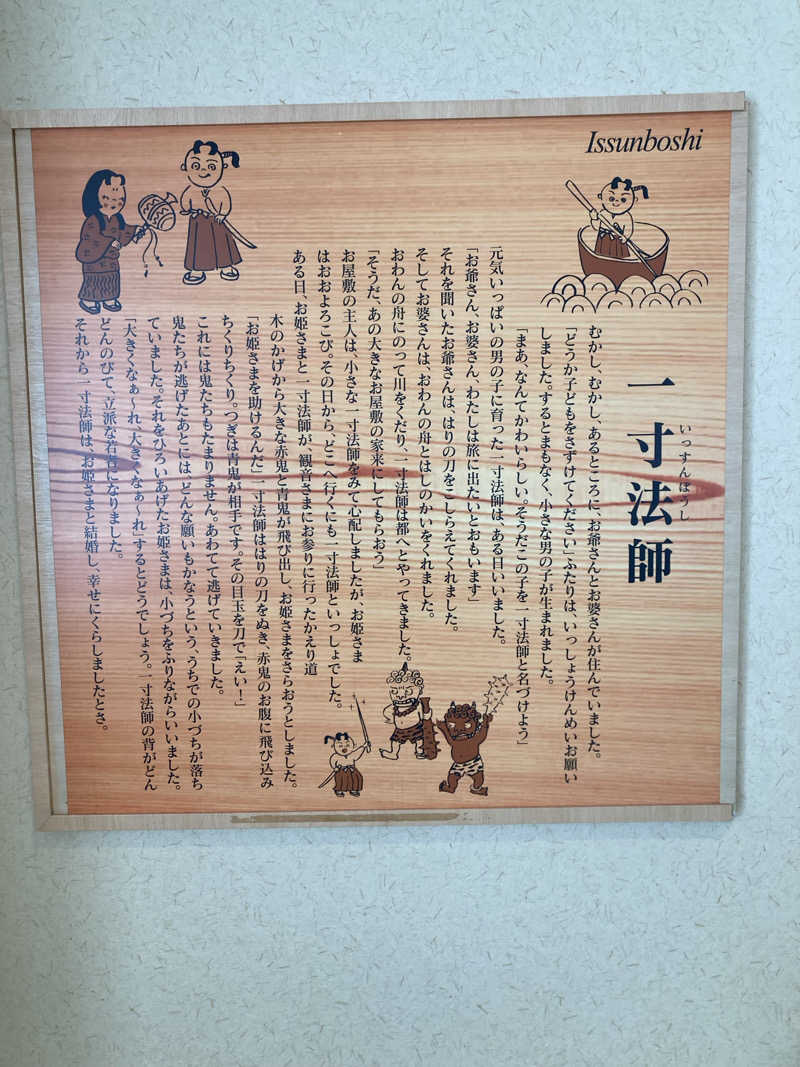 Issunboshi
一寸法師
いっすんぼうし
むかし、むかし、あるところに、お爺さんとお婆さんが住んでいました。
「どうか子どもをさずけてください」ふたりは、いっしょうけんめいお願い
しました。するとまもなく、小さな男の子が生まれました。
「まあ、なんてかわいらしい。そうだこの子を一寸法師と名づけよう」
元気いっぱいの男の子に育った一寸法師は、ある日いいました。
「お爺さん、お婆さん、わたしは旅に出たいとおもいます」
それを聞いたお爺さんは、はりの刀をこしらえてくれました。
そしてお婆さんは、おわんの舟とはしのかいをくれました。
おわんの舟にのって川をくだり、一寸法師は都へとやってきました。
「そうだ、あの大きなお屋敷の家来にしてもらおう」
お屋敷の主人は、小さな一寸法師をみて心配しましたが、お姫さま
はおおよろこび。その日から、どこへ行くにも一寸法師といっしょでした。
ある日、お姫さまと一寸法師が、観音さまにお参りに行ったかえり道
木のかげから大きな赤鬼と青鬼が飛び出し、お姫さまをさらおうとしました。
「お姫さまを助けるんだ」一寸法師ははりの刀をぬき、赤鬼のお腹に飛び込み
ちくりちくり。つぎは青鬼が相手です。その目玉を刀で「えい！」
これには鬼たちもたまりません。あわてて逃げていきました。
鬼たちが逃げたあとには、どんな願いもかなうという、うちでの小づちが落ち
ていました。それをひろいあげたお姫さまは、小づちをふりながらいいました。
「大きくなぁ〜れ、大きくなぁ〜れ」するとどうでしょう。一寸法師の背がどん
どんのびて、立派な若者になりました。
それから一寸法師は、お姫さまと結婚し、幸せにくらしましたとさ。